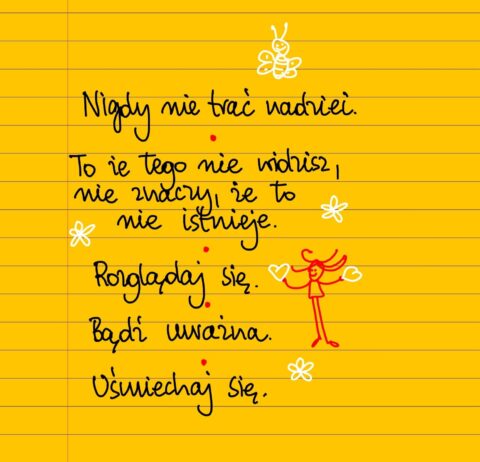 Nigdy nie trać nadziei.
To że tego nie widzisz,
nie znaczy, że to
nie istnieje.
Rozglądaj się.
Bądź uważna.
Uśmiechaj się.